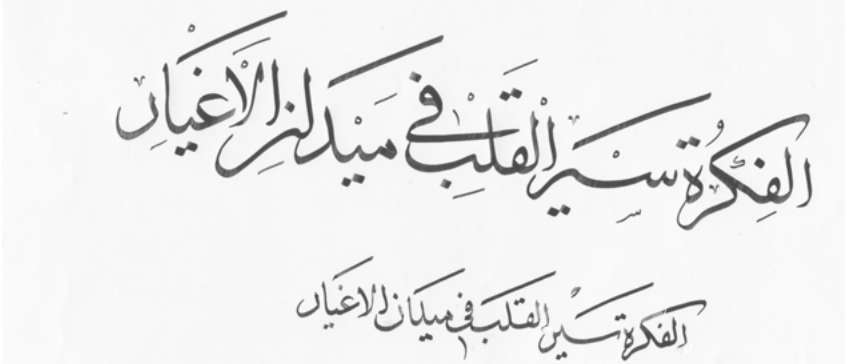 الفِكْرَةُ سَيْرُ الْقَلْبِ فِي مَيْدَانِ الْأَغْيَارِ
الفكرة سير القلب في ميدان الاغيار